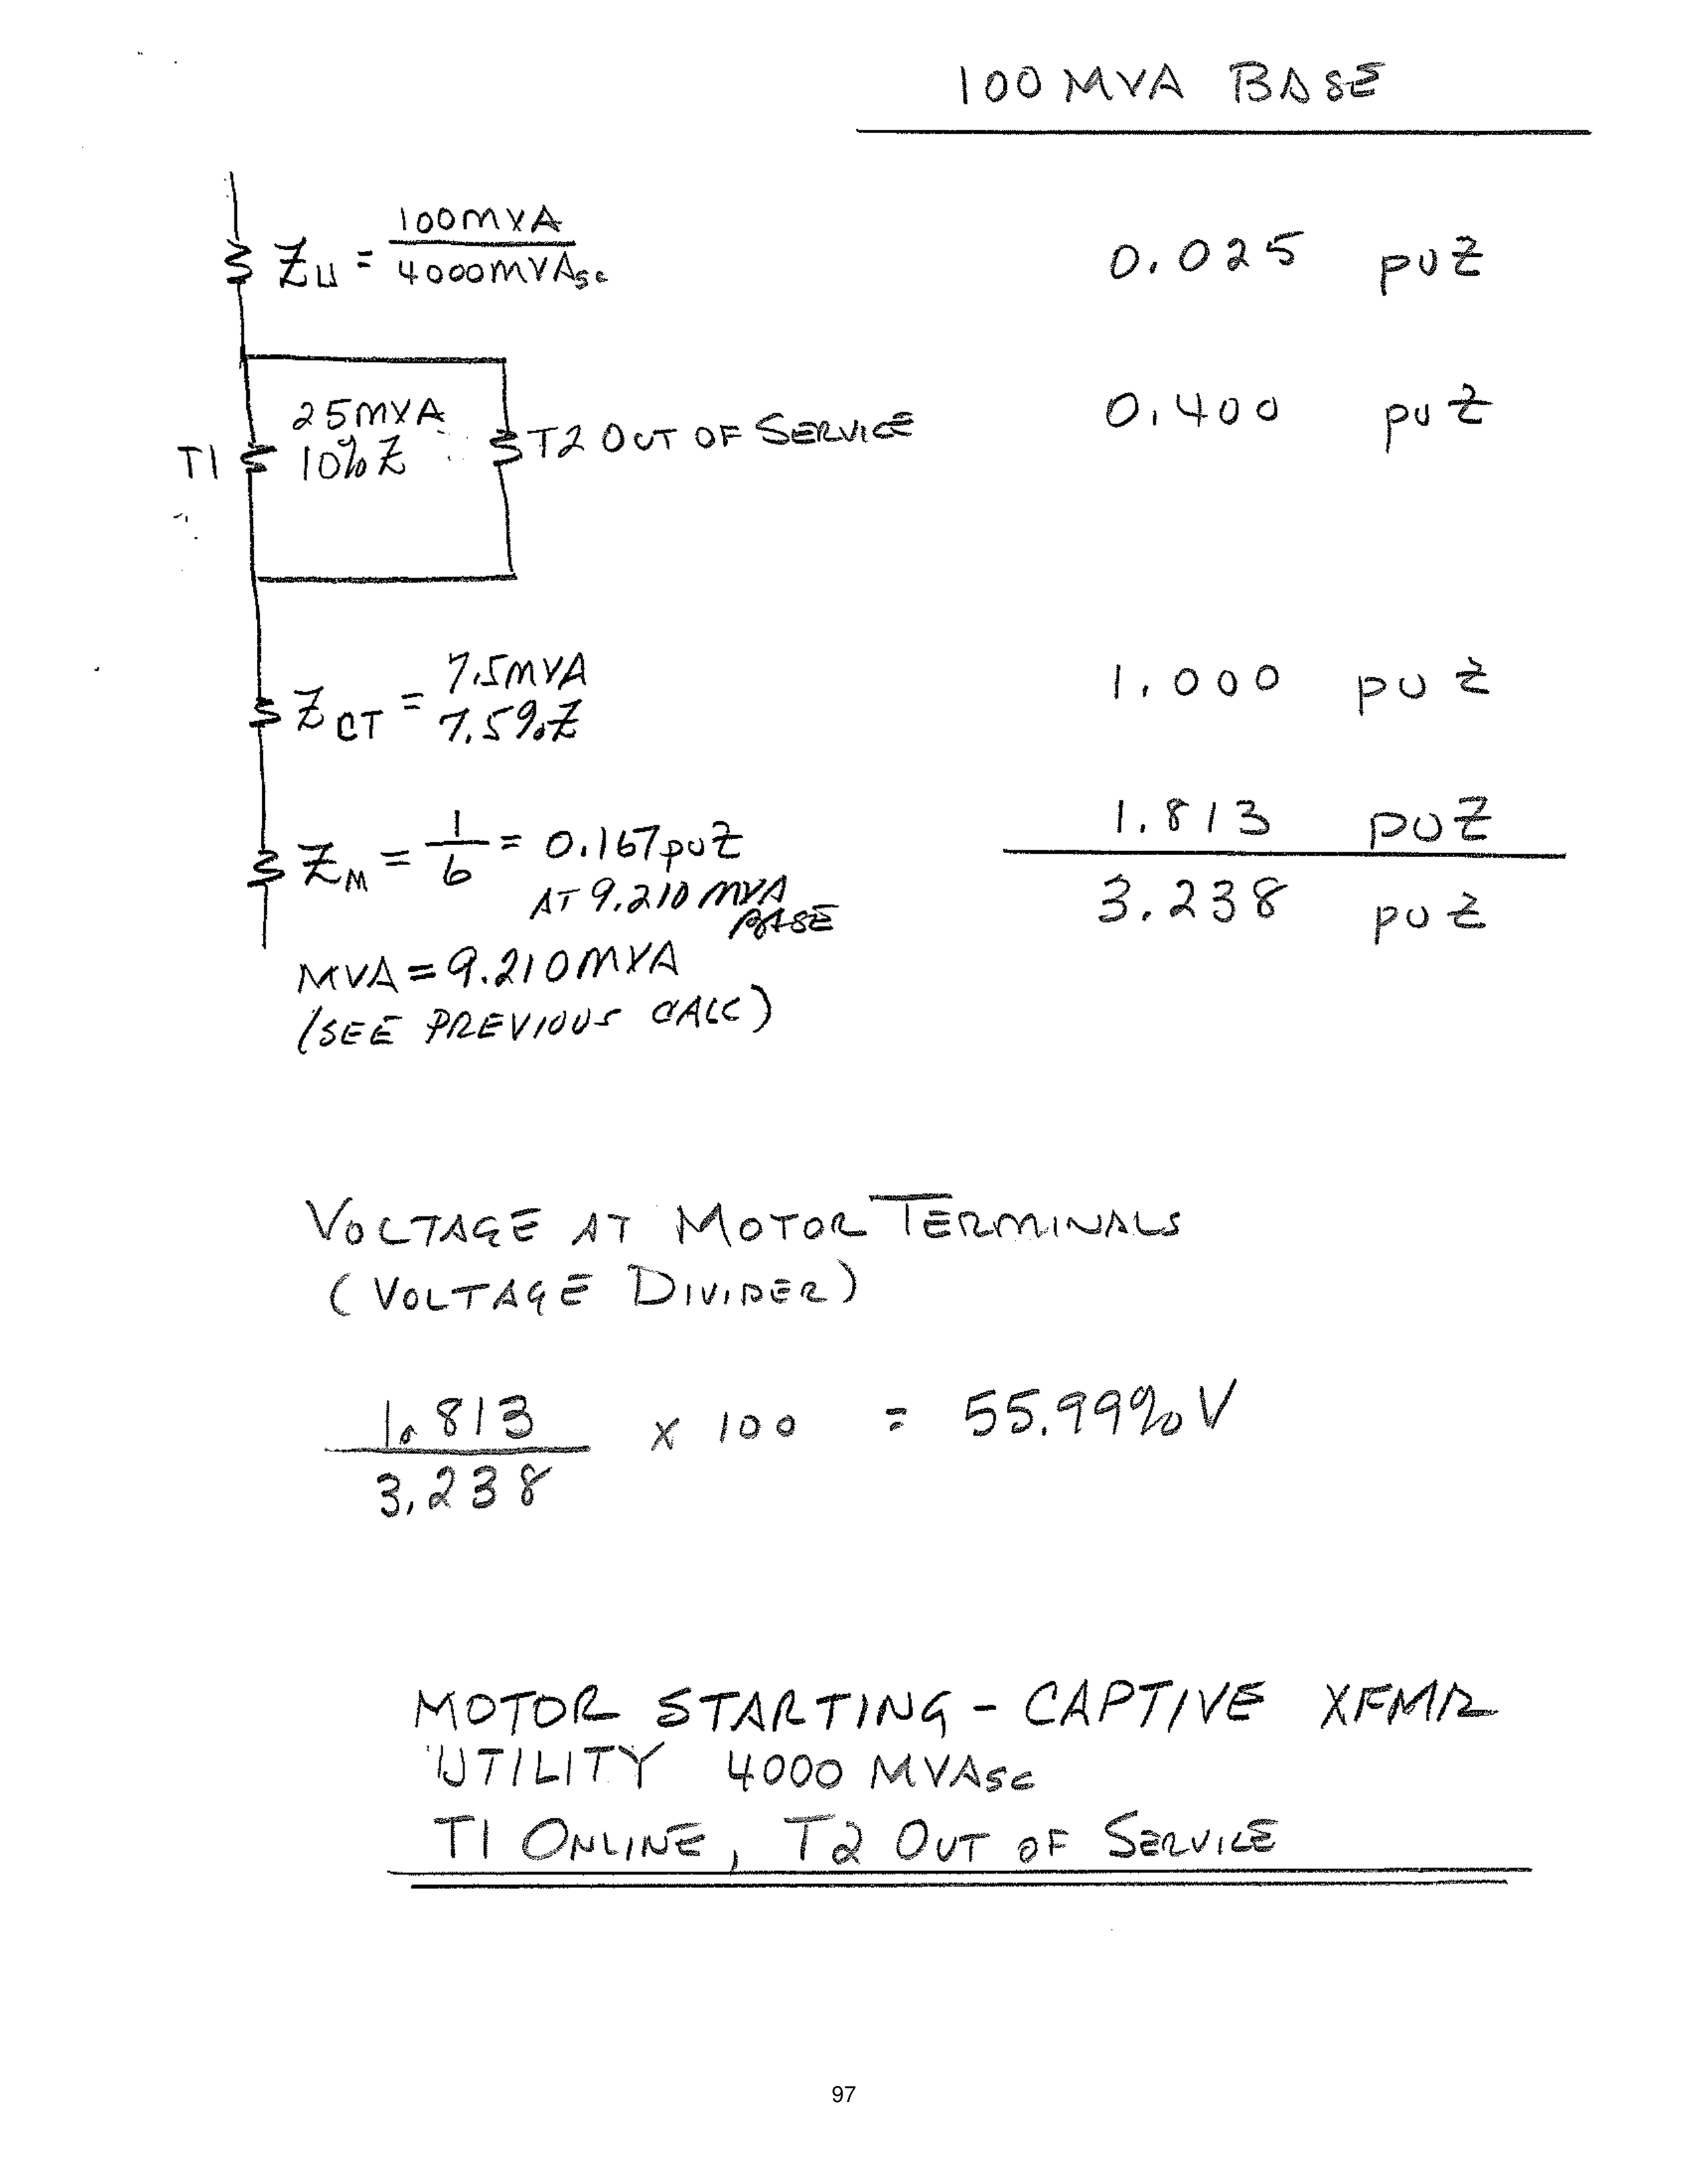 100 MVA BASE
Zu = 100MVA / 4000MVAsc 0.025 puZ
25MVA
T1 10%Z T2 OUT OF SERVICE 0.400 puZ
ZCT = 7.5MVA 1.000 puZ
7.5%Z
ZM = 1/6 = 0.167puZ 1.813 puZ
AT 9.210 MVA BASE 3.238 puZ
MVA = 9.210MVA
(SEE PREVIOUS CALC)
VOLTAGE AT MOTOR TERMINALS
(VOLTAGE DIVIDER)
1.813 / 3.238 x 100 = 55.99%V
MOTOR STARTING - CAPTIVE XFMR
UTILITY 4000 MVASC
T1 ONLINE, T2 OUT OF SERVICE
97